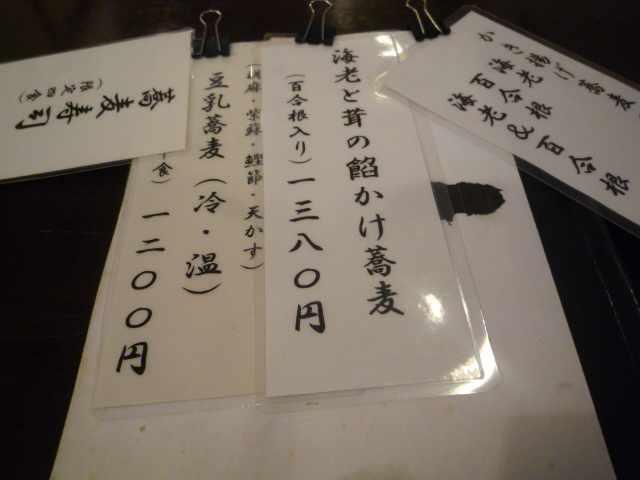 かき揚げ蕎麦
海老
百合根
海老&百合根
海老と茸の餡かけ蕎麦
(百合根入り)一三八〇円
・紫蘇・鰹節・天かす)
豆乳蕎麦(冷・温)
食)一二〇〇円
蕎麦寿司
(限定四食)